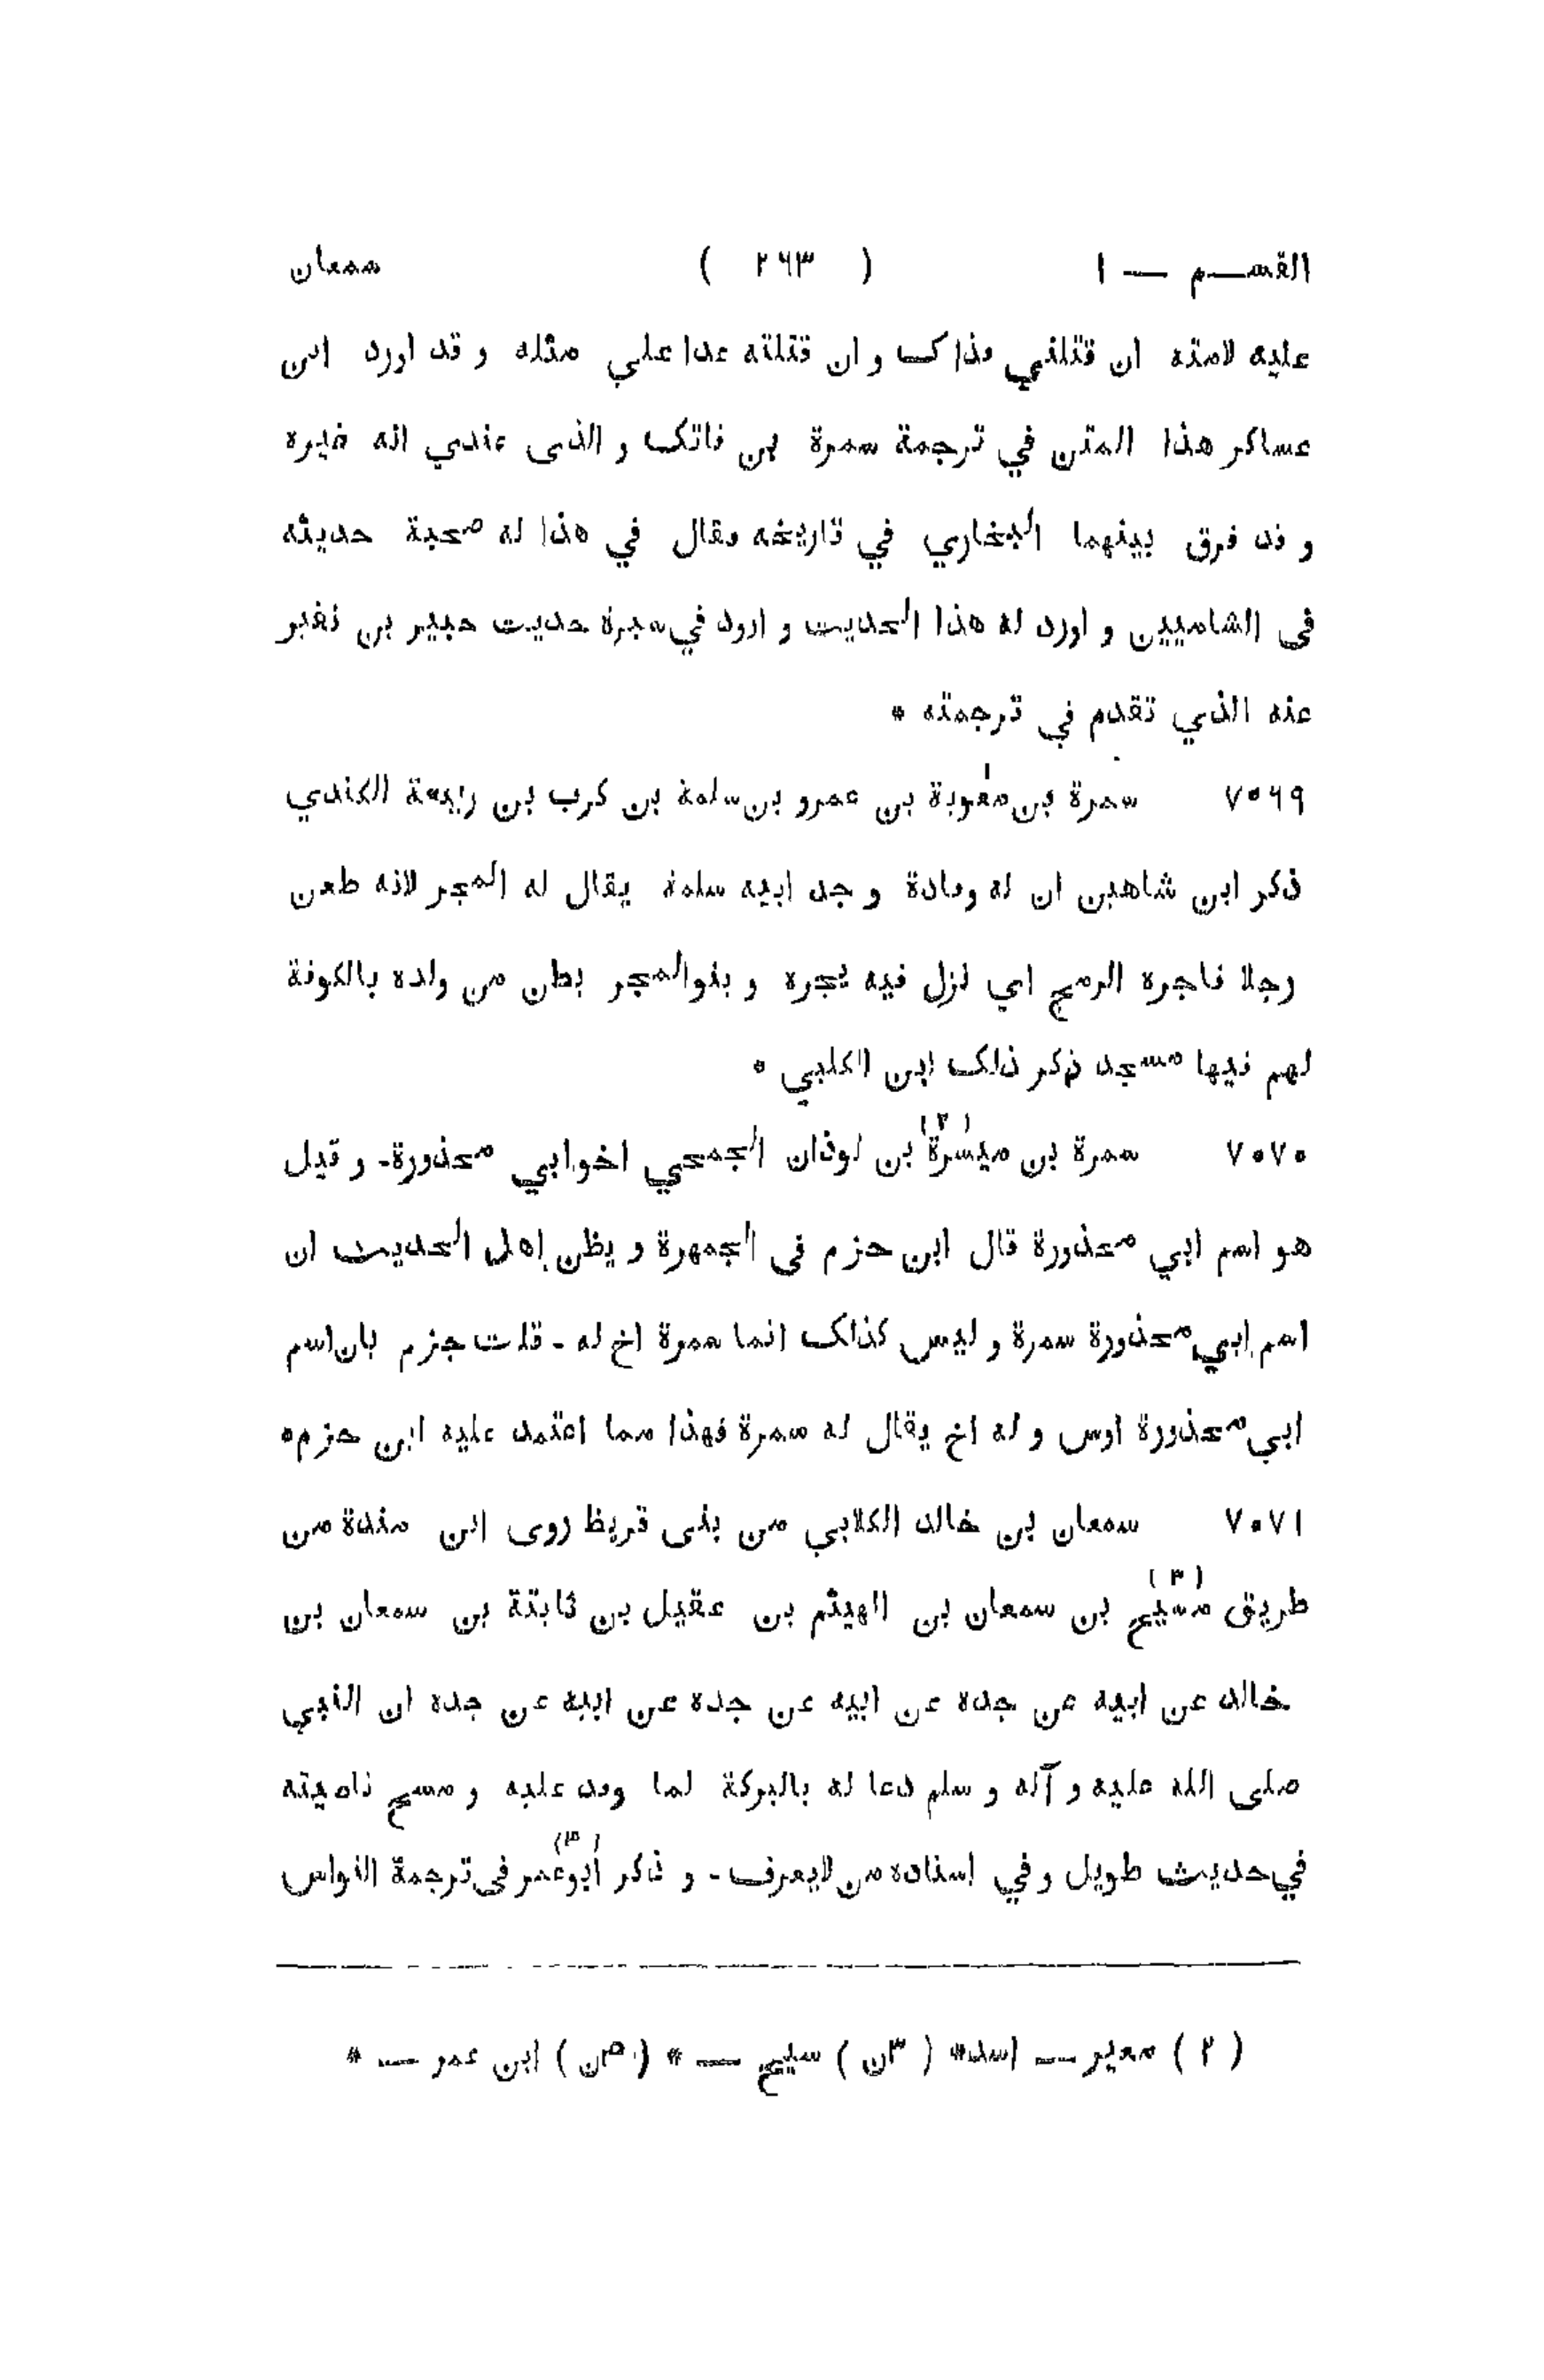 القسم — ١ ( ٢٦٣ ) سمعان
عليه لامته ان قتلني فذاك و ان قتلته عدا علي مثله و قد اورد ابن
عساكر هذا المتن في ترجمة سمرة بن فاتك و الذى عندي انه غيره
و قد فرق بينهما البخاري في تاريخه فقال في هذا له صحبة حديثه
فى الشاميين و اورد له هذا الحديث و اورد في سبرة حديث جبير بن نفير
عنه الذي تقدم في ترجمته *
٧٠٦٩ سمرة بن معٰوية بن عمرو بن سلمة بن كرب بن ربيعة الكندي
ذكر ابن شاهين ان له وفادة و جد ابيه سلمة يقال له المجر لانه طعن
رجلا فاجره الرمح اي نزل فيه يجره و بنو المجر بطن من ولده بالكوفة
لهم فيها مسجد ذكر ذلك ابن الكلبي *
٧٠٧٠ سمرة بن ميسرة (٢) بن لوذان الجمحي اخو ابي محذورة - و قيل
هو اسم ابي محذورة قال ابن حزم فى الجمهرة و يظن إهل الحديث ان
اسم ابي محذورة سمرة و ليس كذلك انما سمرة اخ له - قلت جزم بان اسم
ابي محذورة اوس و له اخ يقال له سمرة فهذا مما اعتمد عليه ابن حزم *
٧٠٧١ سمعان بن خالد الكلابي من بنى قريظ روى ابن مندة من
طريق مسيح (٣) بن سمعان بن الهيثم بن عقيل بن ثابتة بن سمعان بن
خالد عن ابيه عن جده عن ابيه عن جده عن ابيه عن جده ان النبي
صلى الله عليه و آله و سلم دعا له بالبركة لما وفد عليه و مسح ناصيته
في حديث طويل و في اسناده من لا يعرف - و ذكر أبو عمر (٣) فى ترجمة النواس
( ٢ ) معير — اسد * ( ٣ن ) سليح — * ( ٣ن ) ابن عمر — *